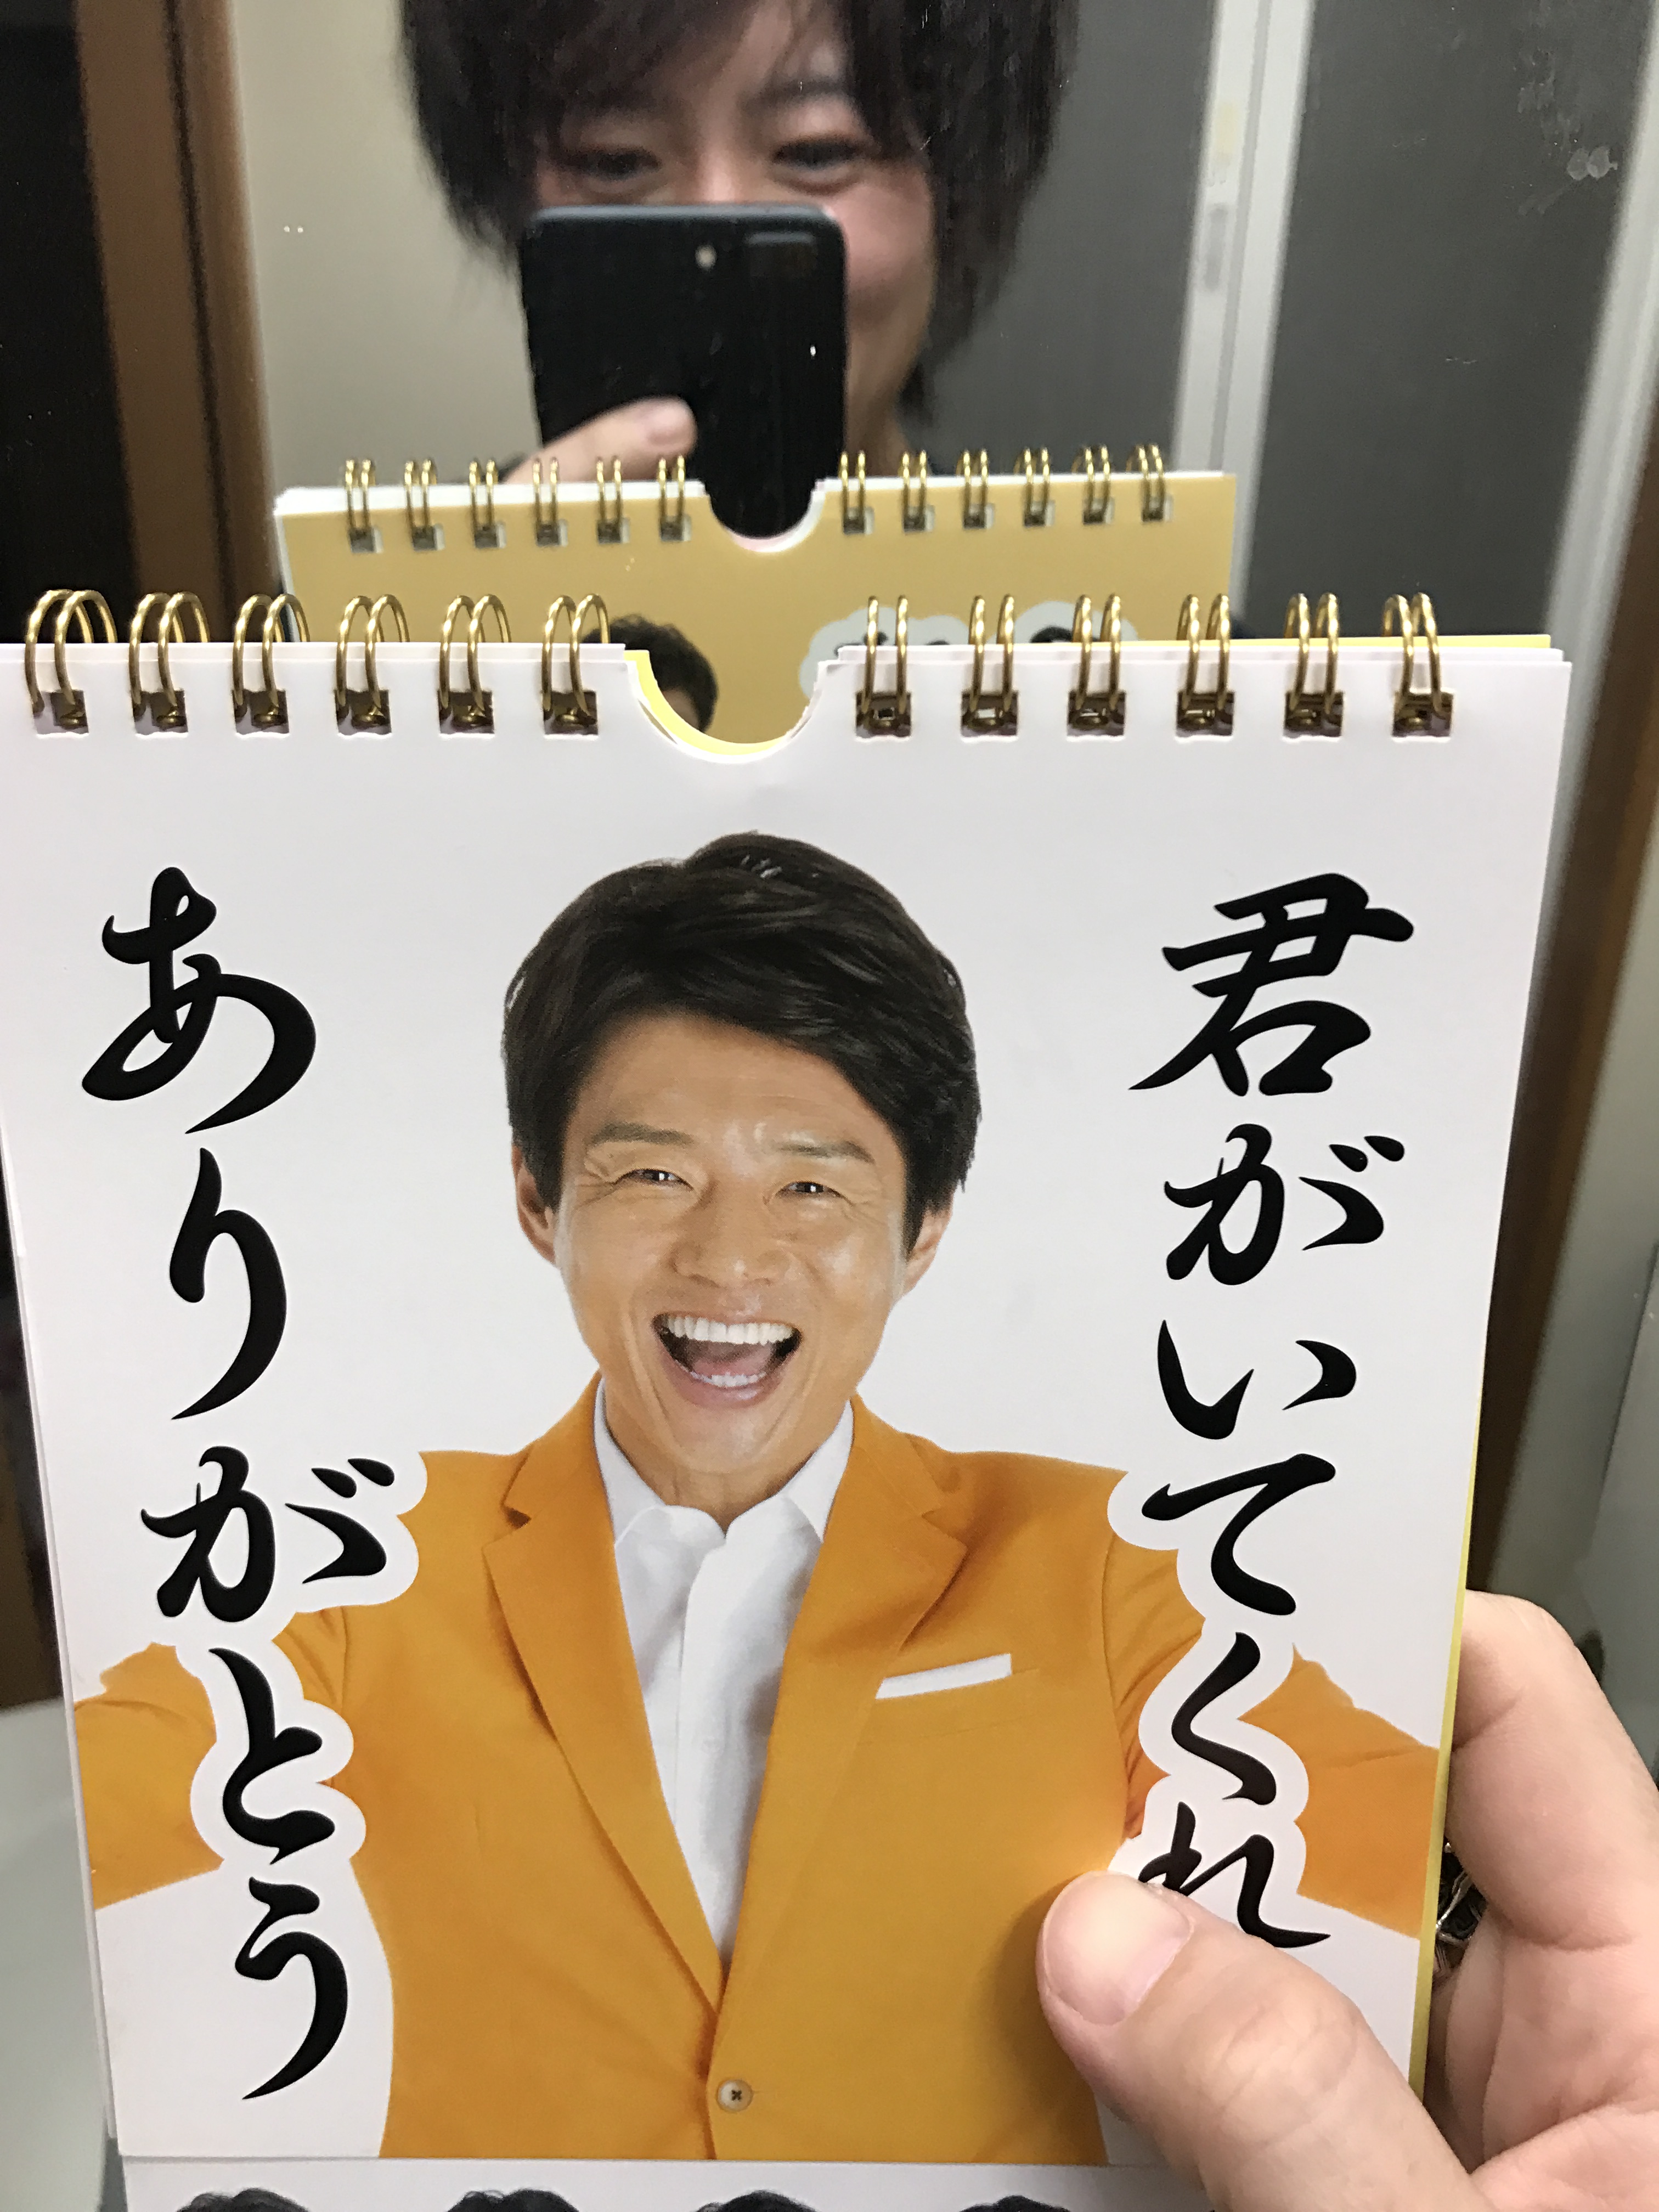 君がいてくれ
ありがとう